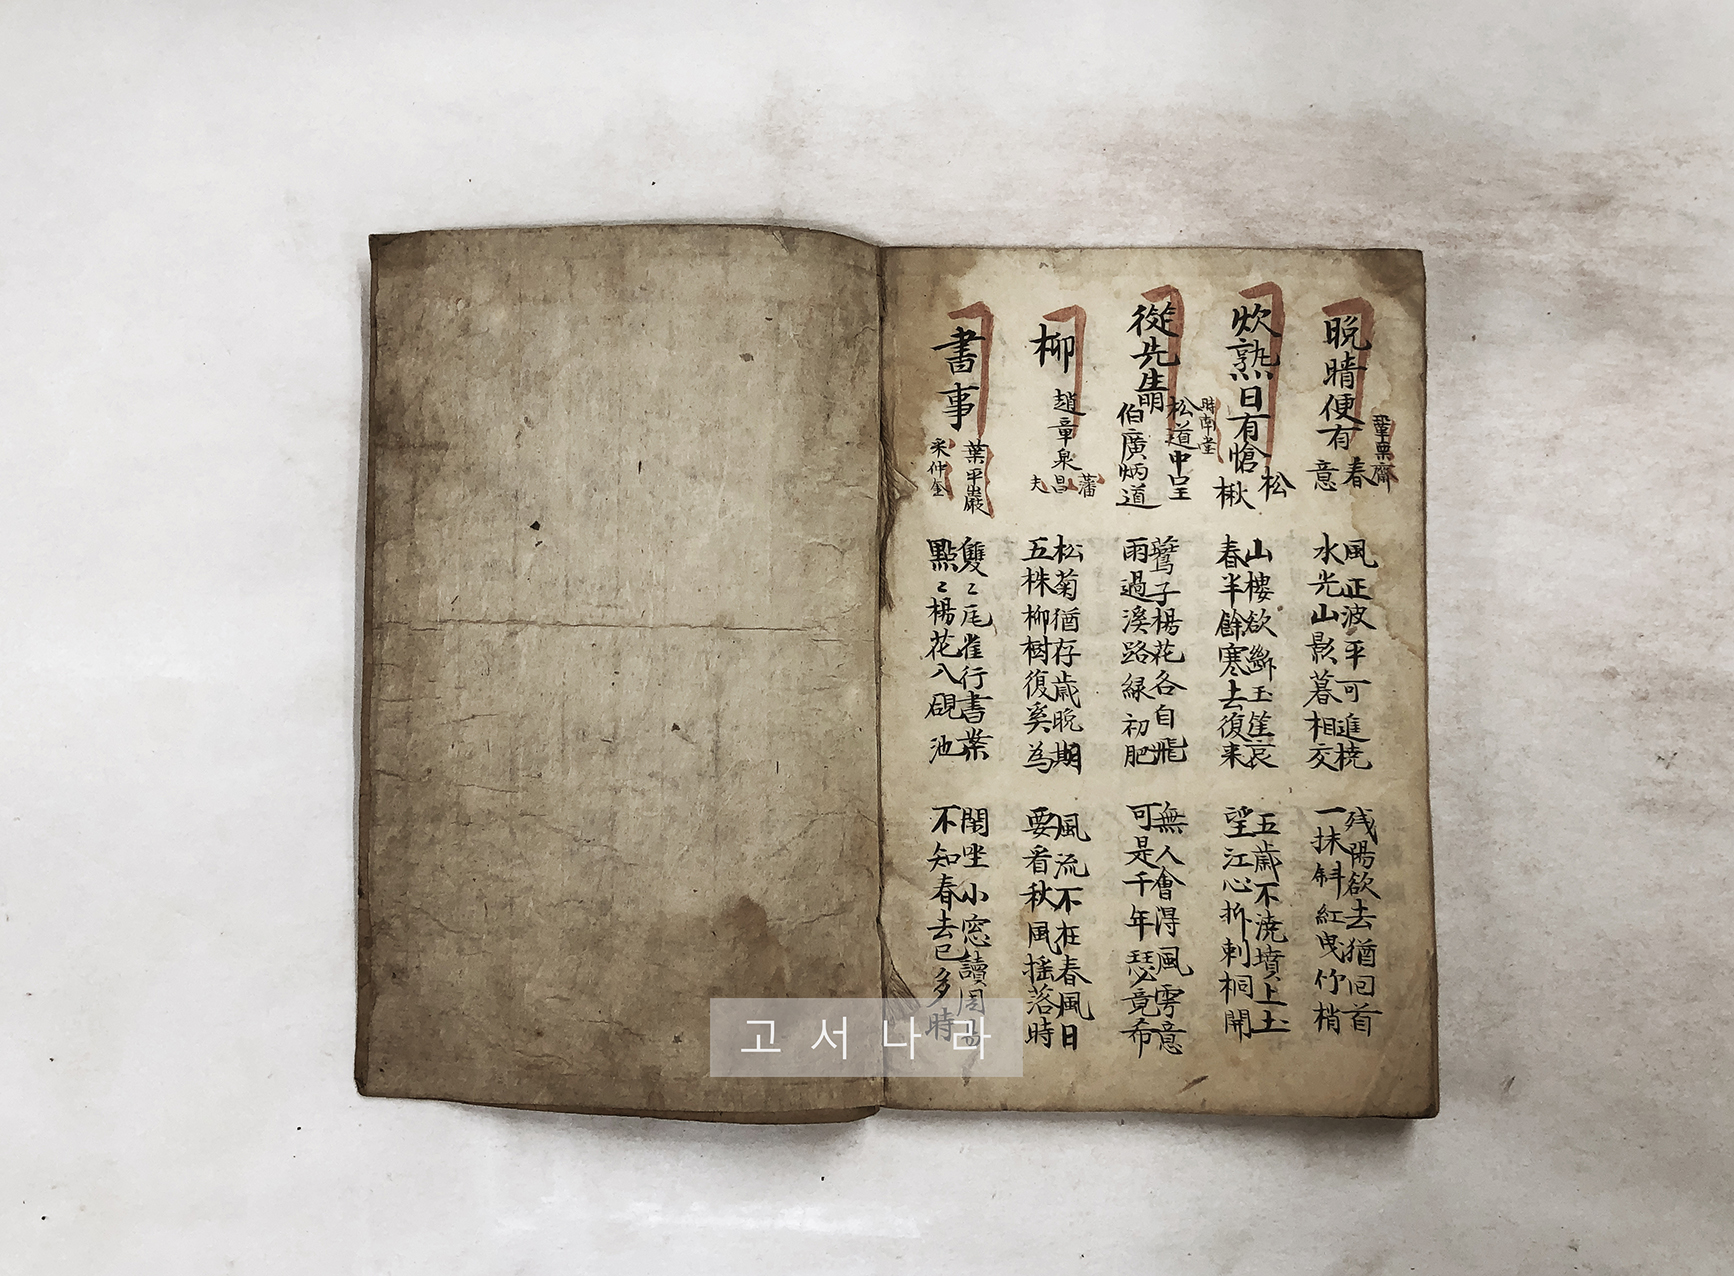 晩晴便有春意
鞏栗齋
風正波平可進橈
水光山影暮相交
残陽欲去猶回首
一抹斜紅曳竹梢
炊熟日有愴松楸
山樓欲斷玉笙哀
春半餘寒去復来
五歲不澆墳上土
望江心折刺桐開
從先生萌松道中呈伯廣炳道
時南堂
鶯子楊花各自飛
雨過溪路緑初肥
無人會得風雩意
可是千年瑟竟希
柳
趙章泉
蕃昌夫
松菊猶存歲晩期
五株柳樹復奚為
風流不在春風日
要看秋風揺落時
書事
葉平巖
采仲金
雙〻瓦雀行書案
點〻楊花入硯池
閑坐小窓讀周
不知春去已多時
고서나라